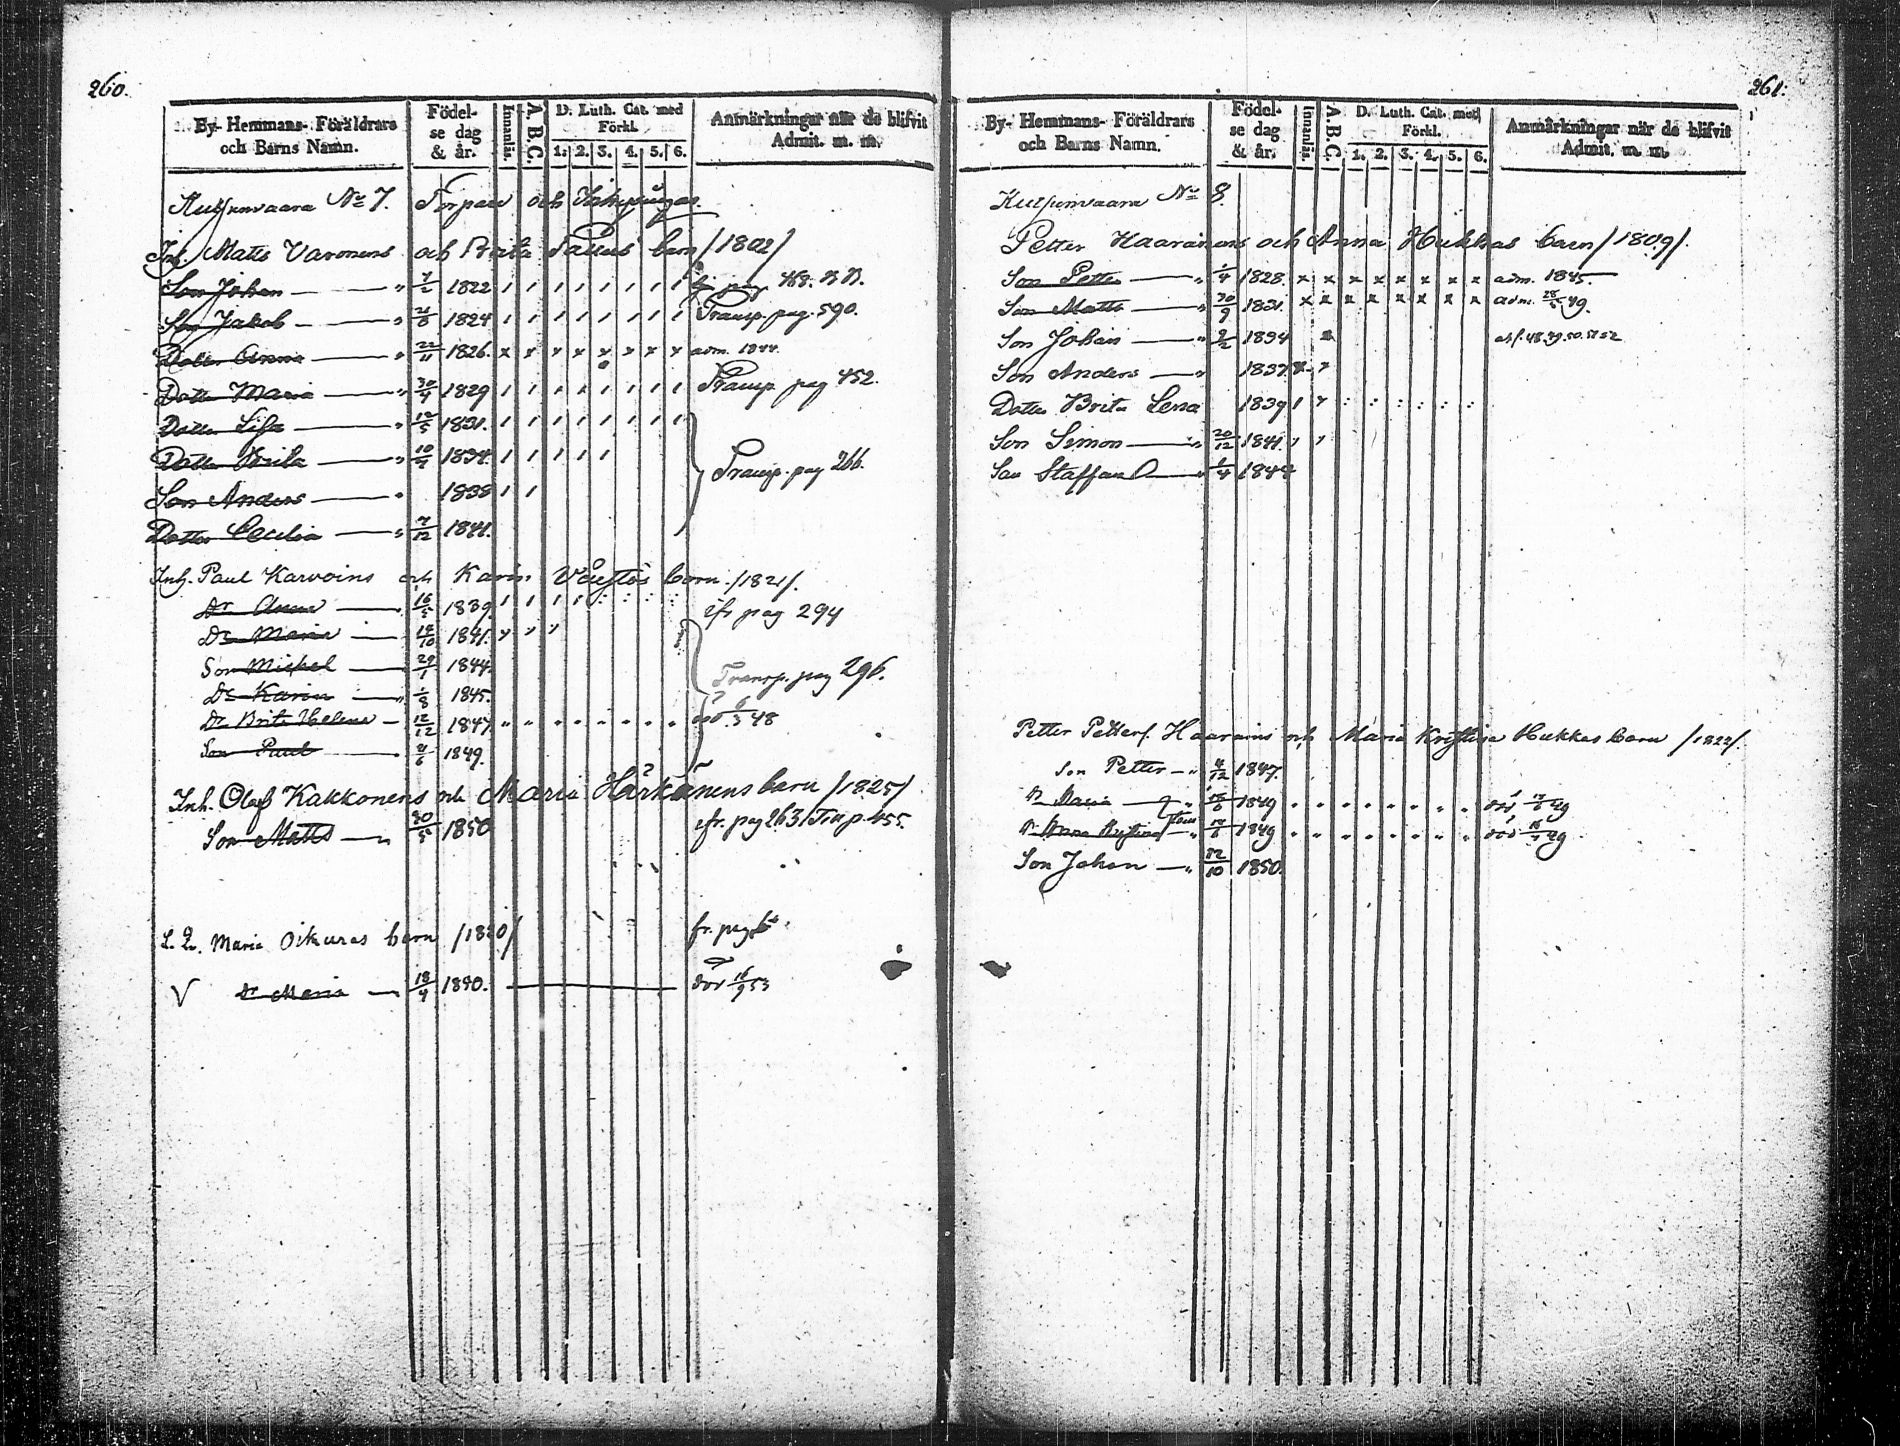 260.
By- Hemmans- Föräldrars och Barns Namn.
Födelse dag & år.
Innanläs.
A. B. C.
D. Luth. Cat. med Förkl.
1. 2. 3. 4. 5. 6.
Anmärkningar när de blifvit Admit. m. m.
No 7. Torpare och
Inh. Matts Varonens och Brita barn /1802/
Son Johan " 7/2 1822 pag 468.
Son Jakob " 21/8 1824 Transp. pag. 590.
Dotter Anna " 22/11 1826. adm. 1844.
Dotter Maria " 30/4 1829 Transp pag 452.
Dotter Lisa " 12/5 1831.
Dotter Brita " 10/4 1834. Transp. pag 266.
Son Anders " 1838
Dotter Cecilia " 7/12 1841.
Inh. Paul Karvoins och Karin barn. /1821/.
Dr Anna 16/5 1839. cfr pag 294
Dr Maria 14/10 1841.
Son Michel 29/1 1844. Transp. pag 296.
Dr Karin " 1/8 1845.
Dr Brita Helena 12/12 1847. död 6/3 48
Son Paul 4/6 1849.
Inh. Olof Kakkonens och Maria Härkönens barn /1825/
Son Matts " 30/5 1850 cfr. pag 263. Trsp 455.
L. Q. Maria Oikuras barn /1820/ fr. pag
V Dr Maria 18/4 1840. död 16/9 53
261.
By- Hemmans- Föräldrars och Barns Namn.
Födelse dag & år.
Innanläs.
A. B. C.
D. Luth. Cat. med Förkl.
1. 2. 3. 4. 5. 6.
Anmärkningar när de blifvit Admit. m. m.
No 8.
Petter Haarainens och Anna Hukkas barn /1809/.
Son Petter " 1/4 1828. x x x x x x x x adm. 1845.
Son Matts " 30/9 1831. x x x x x x x x adm. 49.
Son Johan " 2/2 1834 48.49.50.51.52
Son Anders " 1837
Dotter Brita Lena 1839
Son Simon " 20/12 1841.
Son Staffan " 1/4 1844
Petter Petters. Haarains och Maria Kristina Hukkas barn /1822/.
Son Petter " 4/12 1847.
Dr Maria 1849 död 49
Dr Anna Kristina 1849 död 49
Son Johan " 12/10 1850.